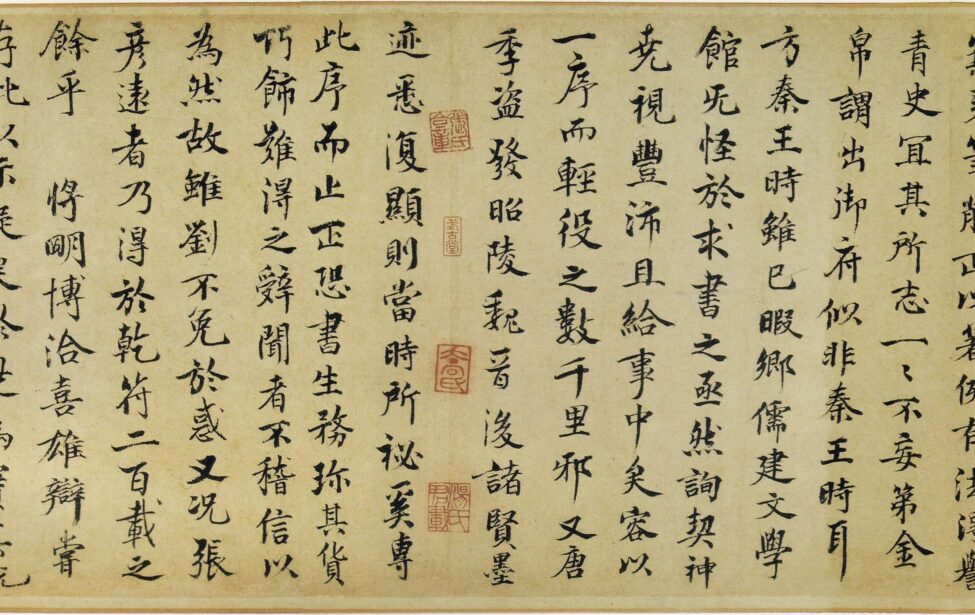 筆削正以著例有
青史冝其所志一〻不妄第金
帛謂出御府似非秦王時耳
方秦王時雖已暇鄉儒建文學
館旡怪於求書之亟然詢契神
尭視豐沛且給事中矣容以
一序而輕役之數千里邪又唐
季盜發昭陵魏晉後諸賢墨
喬氏
湯氏君載
迹悉復顯則當時所祕奚専
此序而止正恐書生務珎其貨
巧飾難得之辭聞者不稽信以
為然故雖劉不免於惑又况張
彦遠者乃得於乾符二百載之
餘乎 将明博洽喜雄辯嘗
此以示